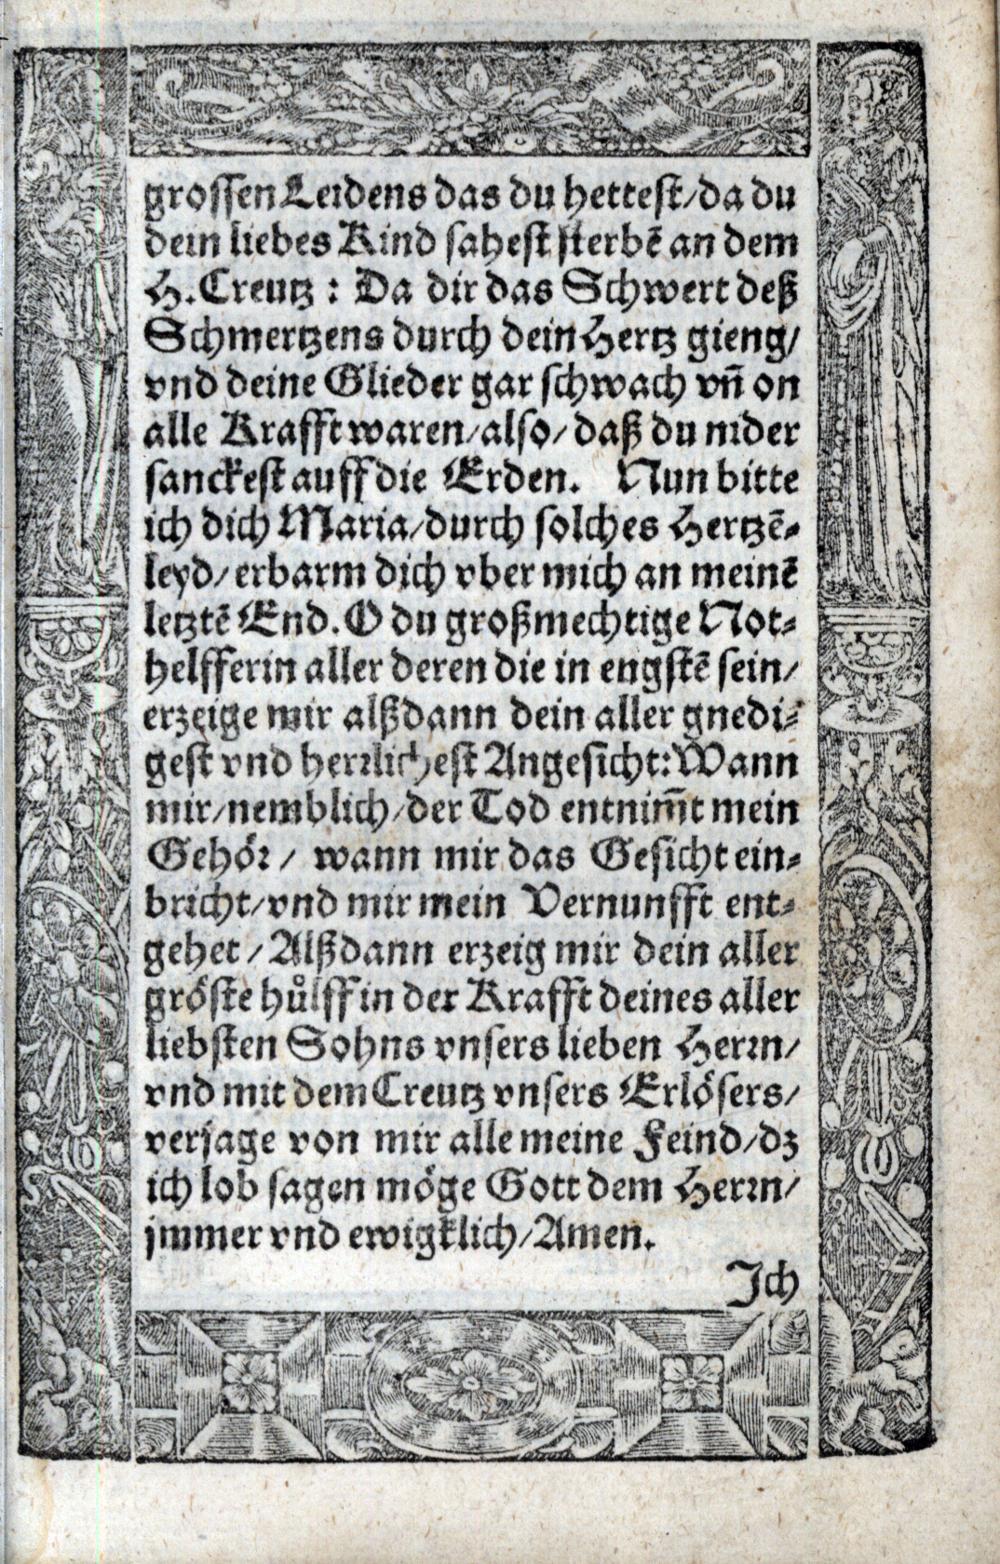 grossen Leidens das du hettest/da du
dein liebes Kind sahest sterbē an dem
H. Creutz : Da dir das Schwert deß
Schmertzens durch dein Hertz gieng/
vnd deine Glieder gar schwach vn̄ on
alle Krafft waren/also/daß du nider
sanckest auff die Erden. Nun bitte
ich dich Maria/durch solches Hertzē-
leyd/erbarm dich vber mich an meinē
letztē End. O du großmechtige Not-
helfferin aller deren die in engstē sein/
erzeige mir alßdann dein aller gnedi-
gest vnd herrlichest Angesicht: Wann
mir/nemblich/der Tod entnim̄t mein
Gehör / wann mir das Gesicht ein-
bricht/vnd mir mein Vernunfft ent-
gehet / Alßdann erzeig mir dein aller
gröste hůlff in der Krafft deines aller
liebsten Sohns vnsers lieben Herrn/
vnd mit dem Creutz vnsers Erlösers/
verjage von mir alle meine Feind/dz
ich lob sagen möge Gott dem Herrn/
jmmer vnd ewigklich/Amen.
Ich